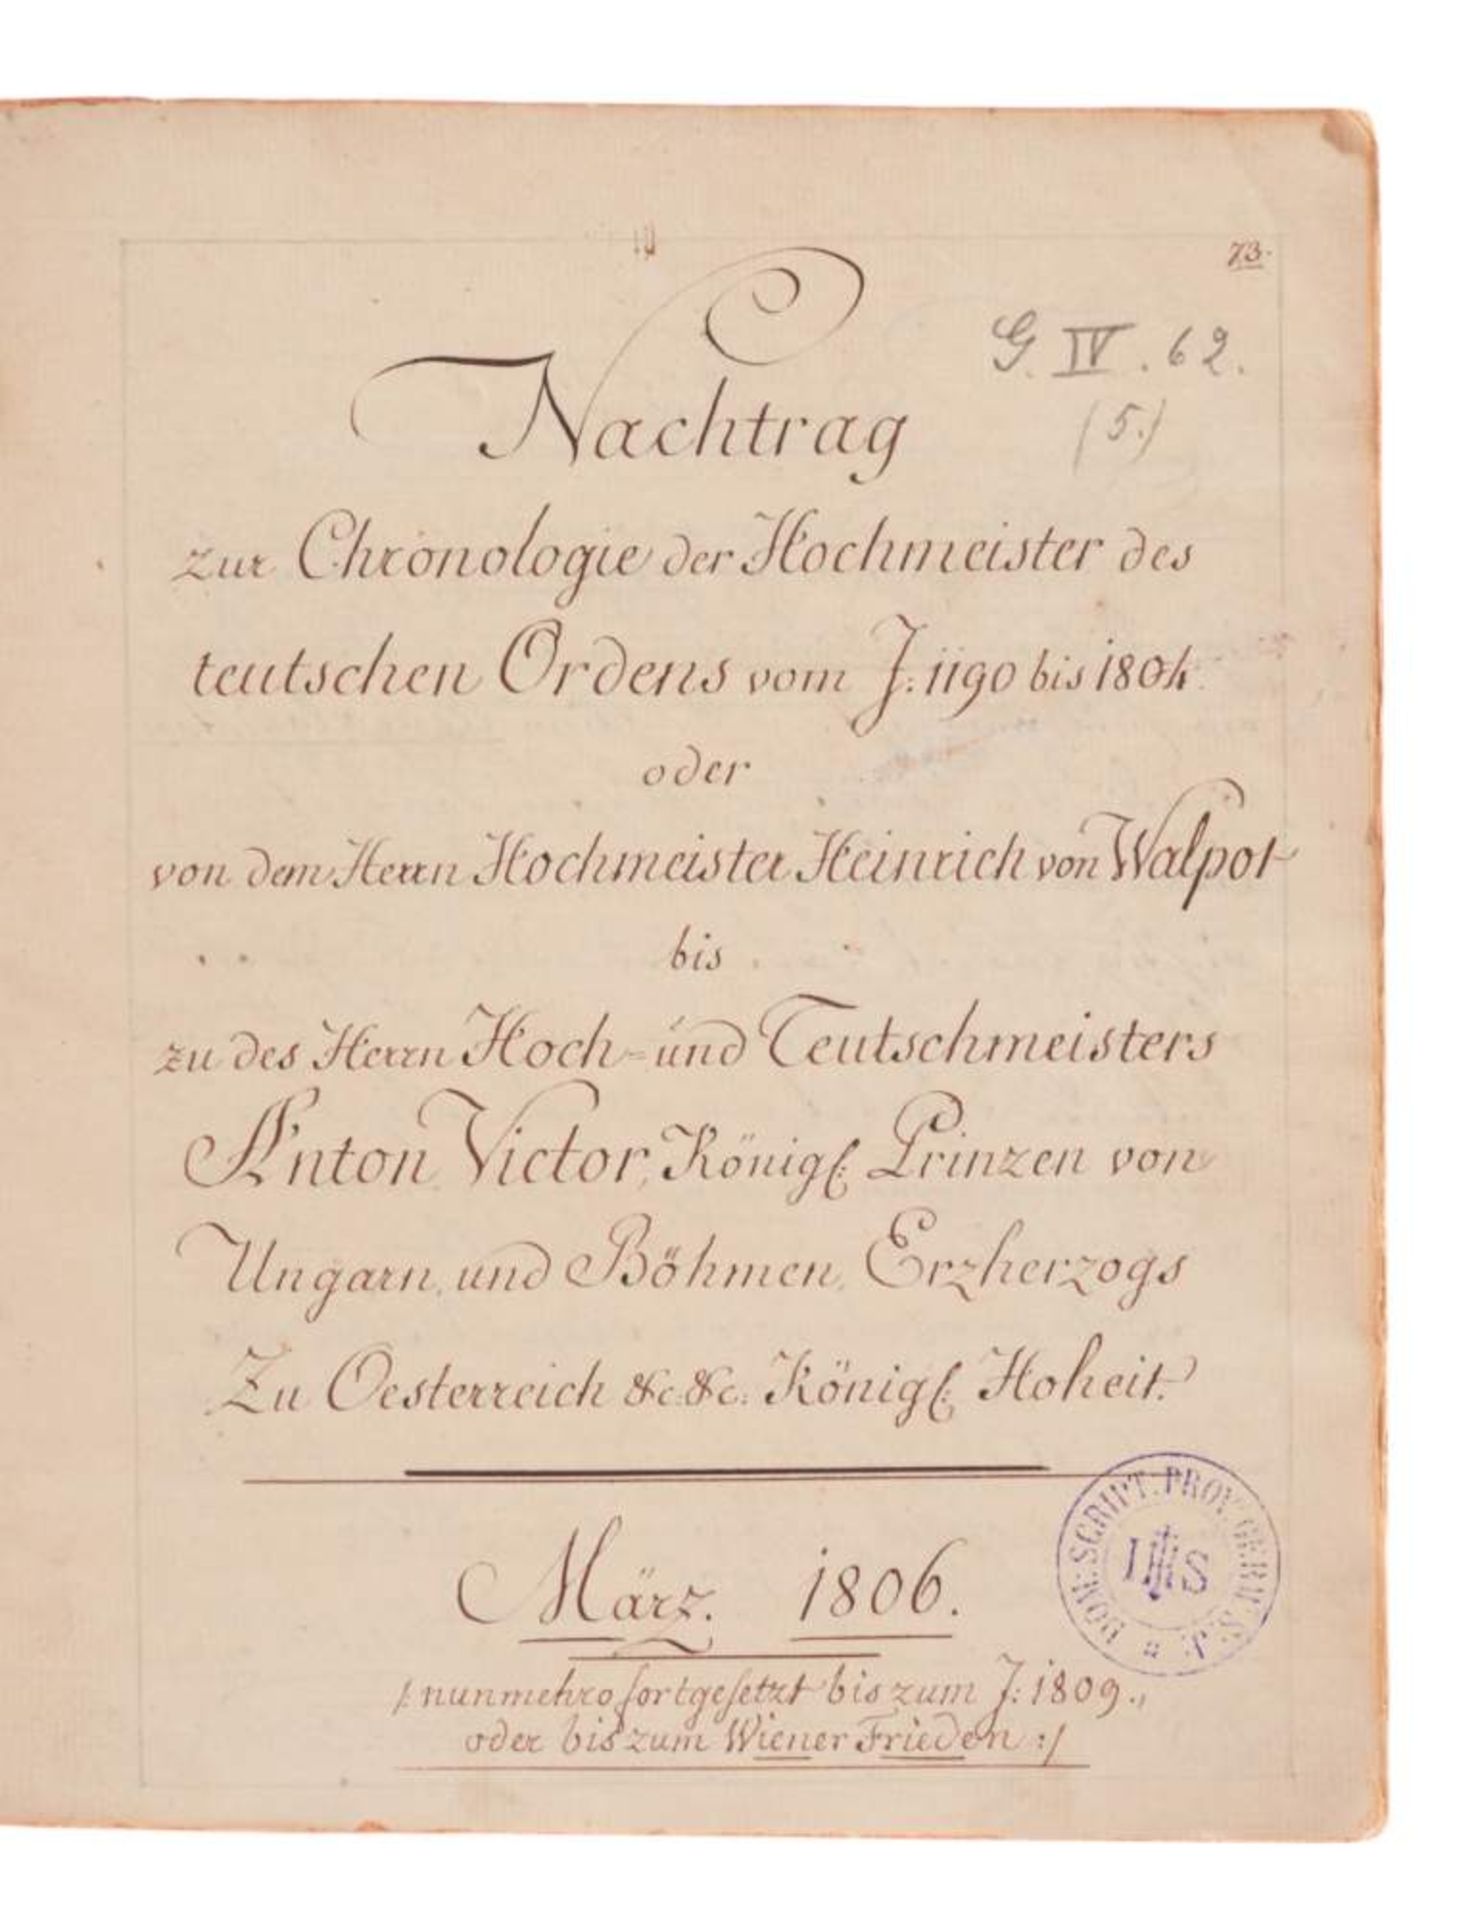 73.
G. IV. 62.
(5.)
Nachtrag
zur Chronologie der Hochmeister des
teutschen Ordens vom J: 1190 bis 1804.
oder
von dem Herrn Hochmeister Heinrich von Walpot
bis
zu des Herrn Hoch- und Teutschmeisters
Anton Victor, Königl: Prinzen von
Ungarn, und Böhmen, Erzherzogs
Zu Oesterreich &c. &c: Königl: Hoheit.
März. 1806.
/: nunmehro fortgesetzt bis zum J: 1809.,
oder bis zum Wiener Frieden :/
DOM. SCRIPT. PROV. GERM. S. J.
IHS